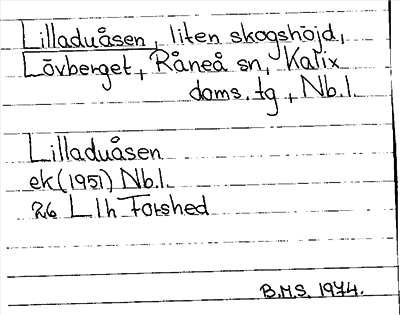 Lilladuåsen, liten skogshöjd,
Lövberget, Råneå sn, Kalix
doms. tg, Nb.l.
Lilladuåsen
ek (1951) Nb.l.
26 L l h Forshed
B.M.S. 1974.